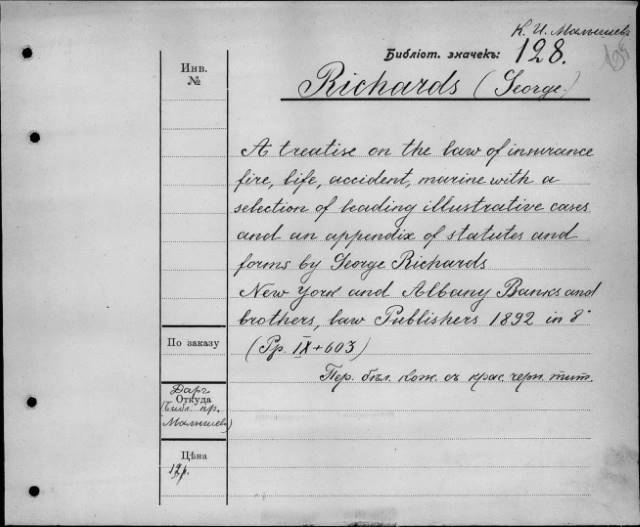 К. И. Малышевъ
Библіот. значекъ: 128.
Инв.
№
Richards (George)
A treatise on the law of insurance
fire, life, accident, marine with a
selection of leading illustrative cases
and an appendix of statutes and
forms by George Richards
New York and Albany Banks and
brothers, law Publishers 1892 in 8°
(Pp. IX+603)
По заказу
Пер. бѣл. кож. съ крас. черн. тит.
Даръ
Откуда
(Библ. пр.
Малышева)
Цѣна
12р.